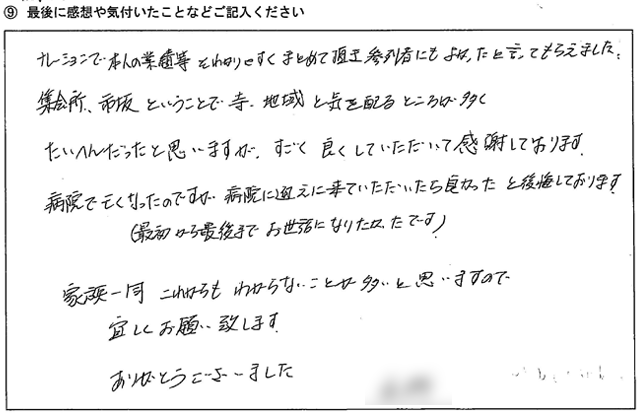 ⑨ 最後に感想や気付いたことなどご記入ください
ナレーションで本人の業績等 それわかりやすくまとめて頂き参列者にもよかったと言ってもらえました。
集会所、市坂ということで寺、地域と気を配るところが多く
たいへんだったと思いますが、すごく良くしていただいて感謝しております。
病院で亡くなったのですが 病院に迎えに来ていただいたら良かったと後悔しております
(最初から最後までお世話になりたかったです)
家族一同 これからもわからないことが多いと思いますので
宜しくお願い致します
ありがとうございました